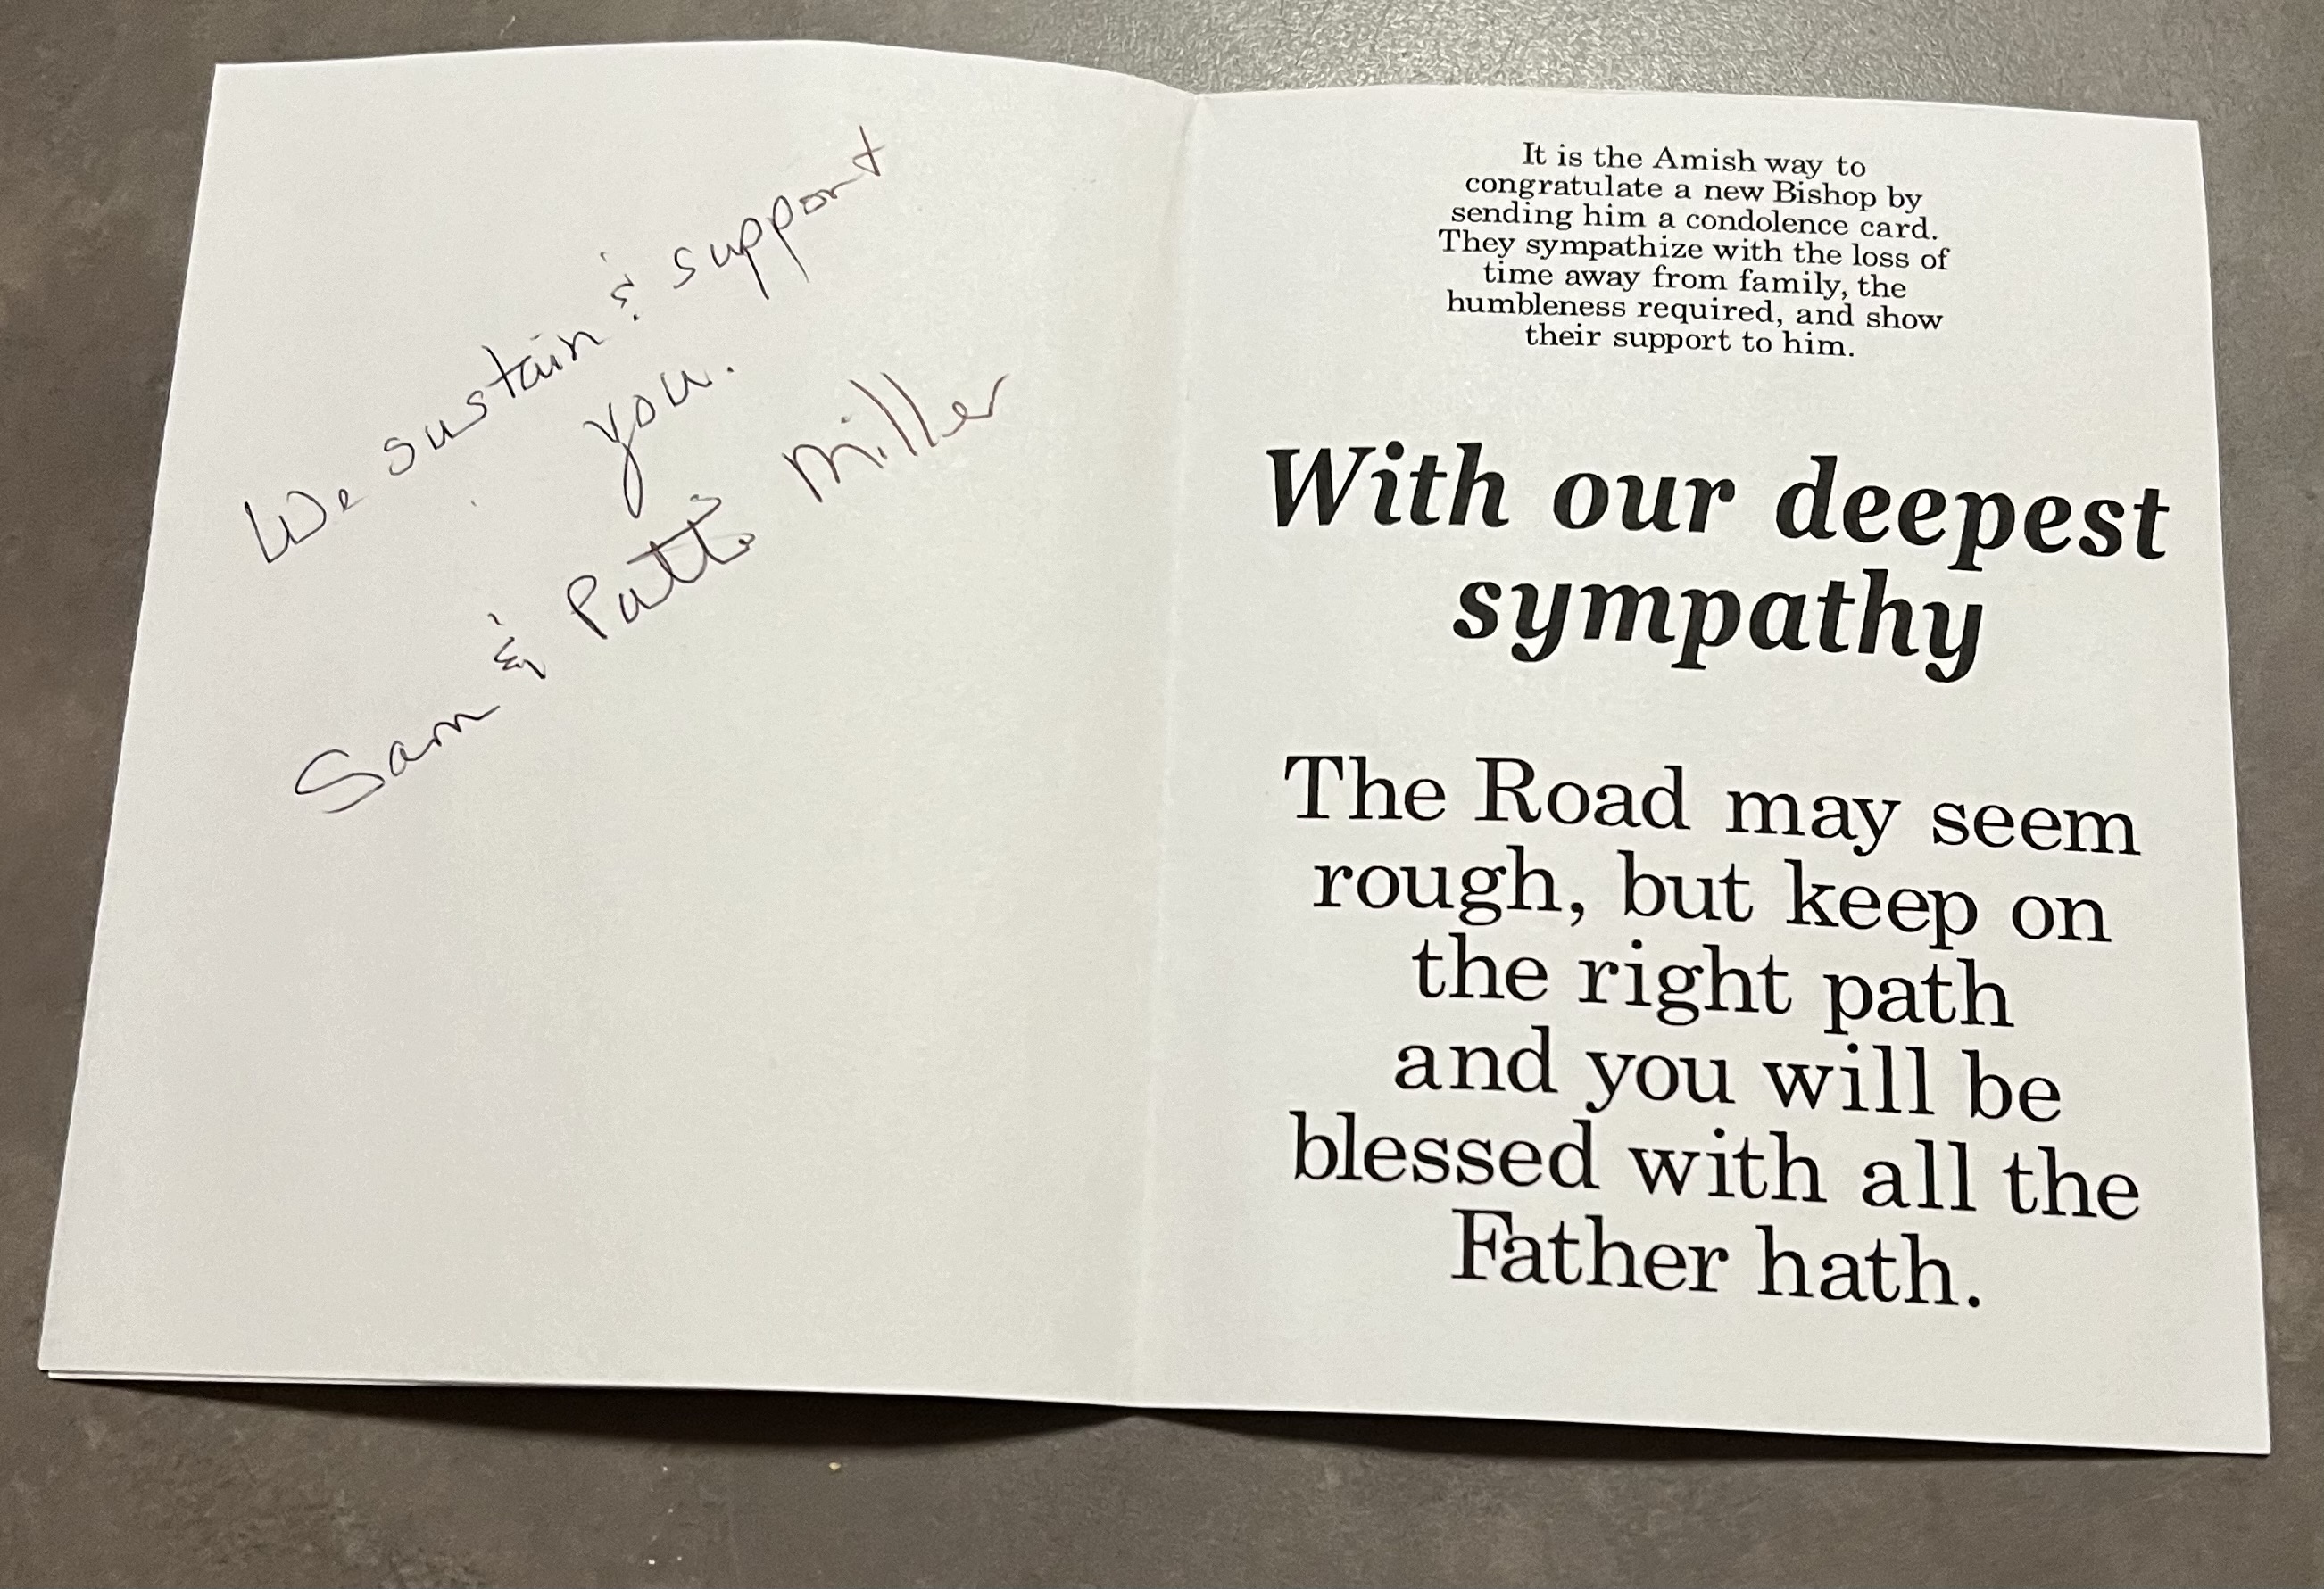 We sustain & support
you.
Sam & Patti Miller
It is the Amish way to
congratulate a new Bishop by
sending him a condolence card.
They sympathize with the loss of
time away from family, the
humbleness required, and show
their support to him.
With our deepest
sympathy
The Road may seem
rough, but keep on
the right path
and you will be
blessed with all the
Father hath.